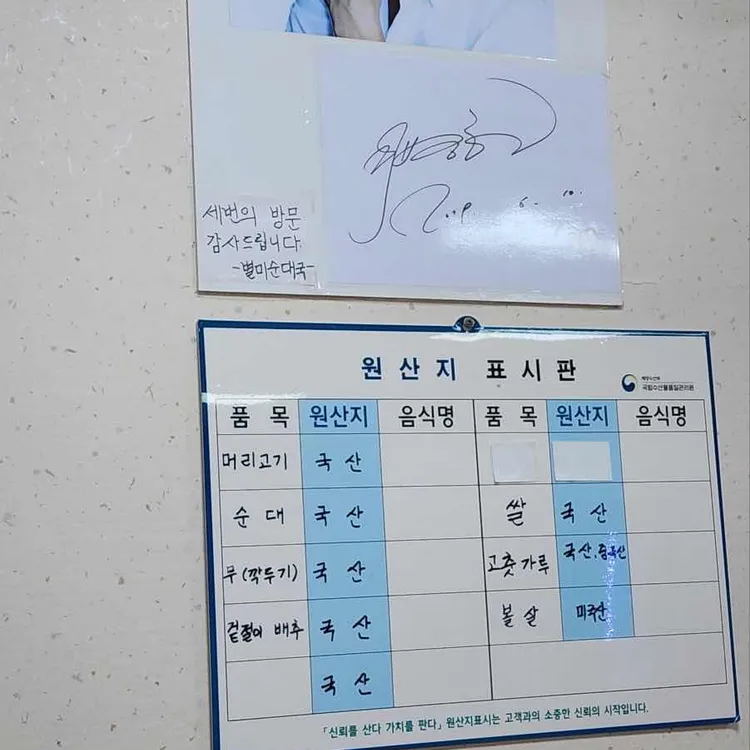 세번의 방문
감사드립니다
-별미순대국-
원산지 표시판
해양수산부
국립수산물품질관리원
품목 원산지 음식명 품목 원산지 음식명
머리고기 국산
순대 국산 쌀 국산
무(깍두기) 국산 고춧가루 국산,중국산
겉절이 배추 국산 볼살 미국산
국산
「신뢰를 산다 가치를 판다」 원산지표시는 고객과의 소중한 신뢰의 시작입니다.